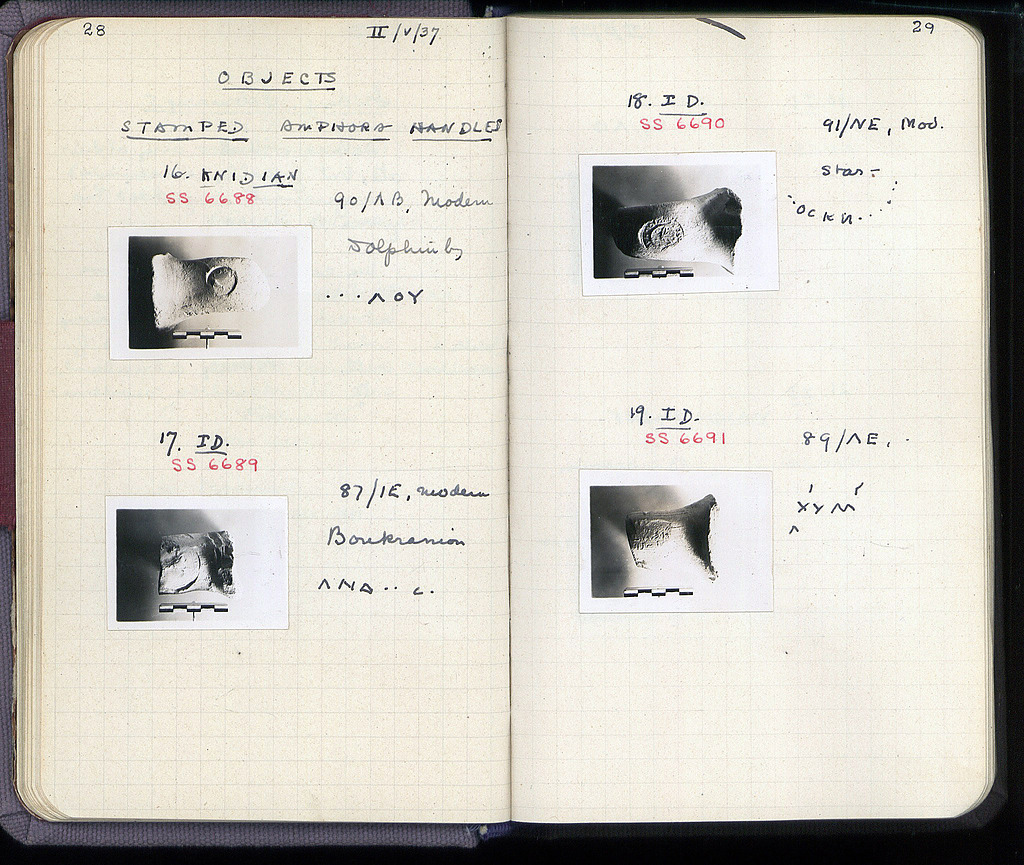 28
II/V/37
OBJECTS
STAMPED AMPHORA HANDLES
16. KNIDIAN
SS 6688
90/ΛB, Modern
Dolphin
...ΛOY
17. ID.
SS 6689
87/IE, modern
Boukranion
ΛNΔ.. C.
29
18. ID.
SS 6690
91/NE, Mod.
Star -
OCKN...
19. ID.
SS 6691
89/ΛE,
XYM
Λ